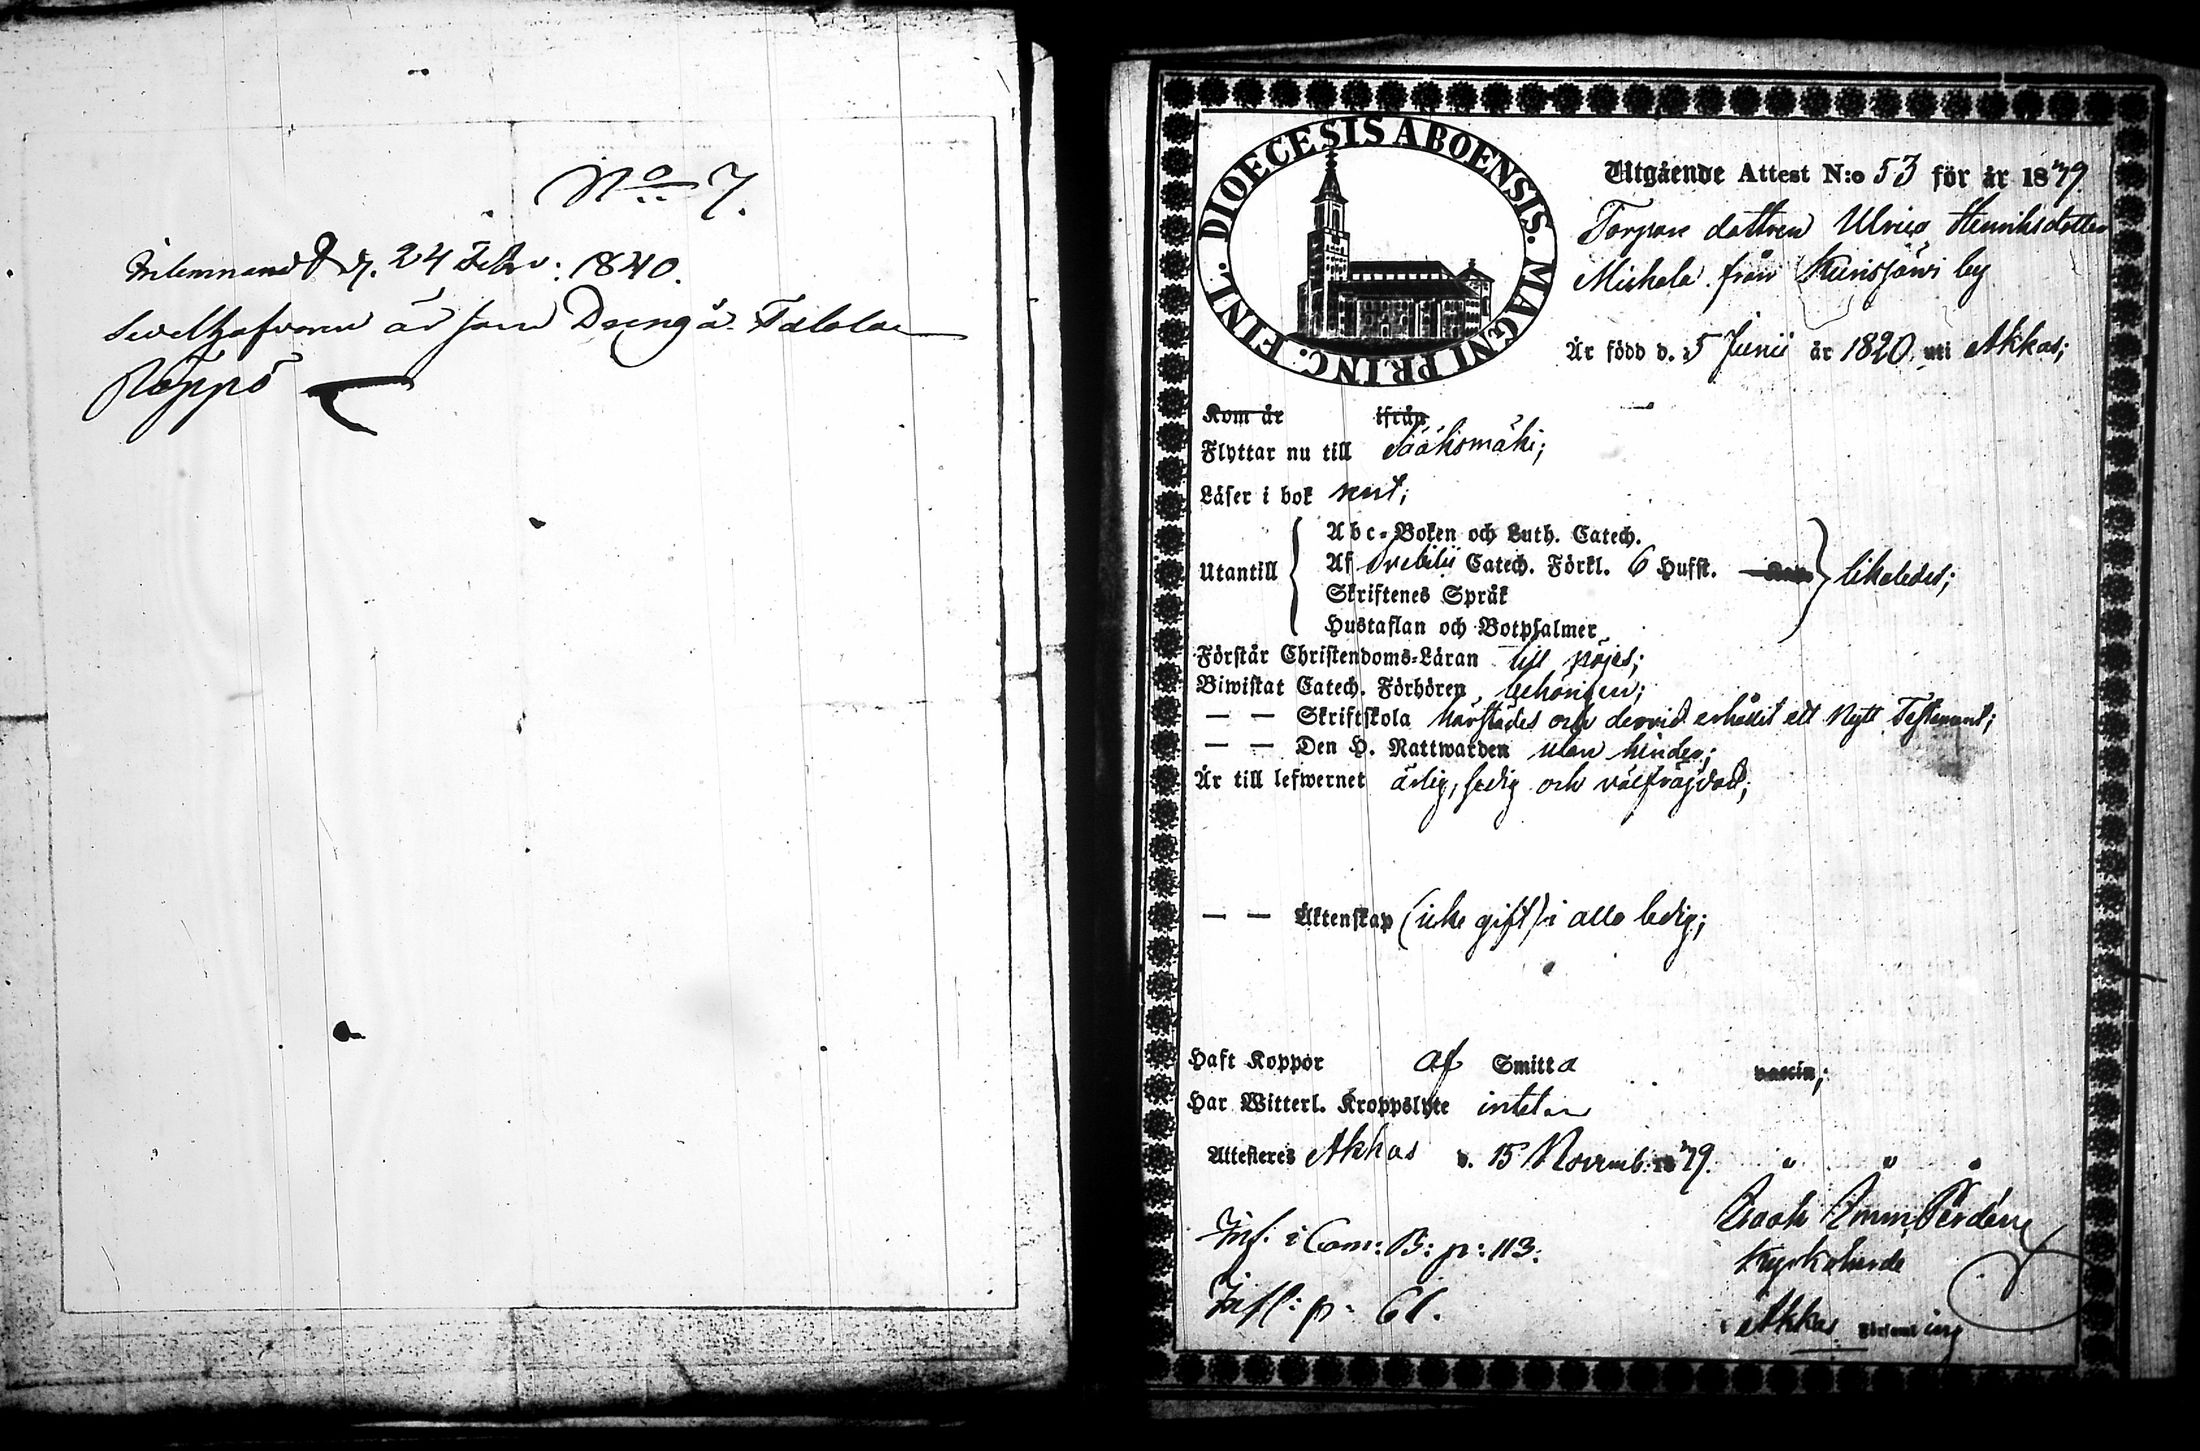 No 7.
Inlemnand d. 24 Febr: 1840.
är som Dräng å Talola
Roppo
DIOECESIS ABOENSIS. MAGNI PRINC. FINL.
Utgående Attest N:o 53 för år 1839
Torpare dottren Ulrica Henriksdotter
Michola från Kurisjärvi by
Är född d. 5 Junii år 1820 uti Akkas;
Kom år ifrån
Flyttar nu till Sääksmäki;
Läser i bok rent;
Abc-Boken och Luth. Catech.
Utantill Af Svebilii Catech. Förkl. 6 Hufst. likaledes;
Skriftenes Språk
Hustaflan och Botpsalmer
Förstår Christendoms-Läran till nöjes;
Biwistat Catech. Förhören behörigen;
— — Skriftskola härstädes och dervid erhållit ett Nytt Testament;
— — Den H. Nattwarden utan hinder;
Är till lefwernet ärlig, sedig och välfräjdad;
— — Äktenskap (icke gift) i allo ledig;
Haft Koppor af Smitta vaccin;
Har Witterl. Kroppslyte intet
Attesteres Akkas d. 15 Novemb. 1839.
Isaak Emm. Perdén
Inf. i Com: B: p: 113. Kyrkoherde
Infl: p: 61. i Akkas Församling